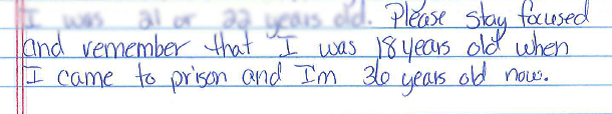 I was 21 or 22 years old. Please stay focused
and remember that I was 18 years old when
I came to prison and I'm 36 years old now.